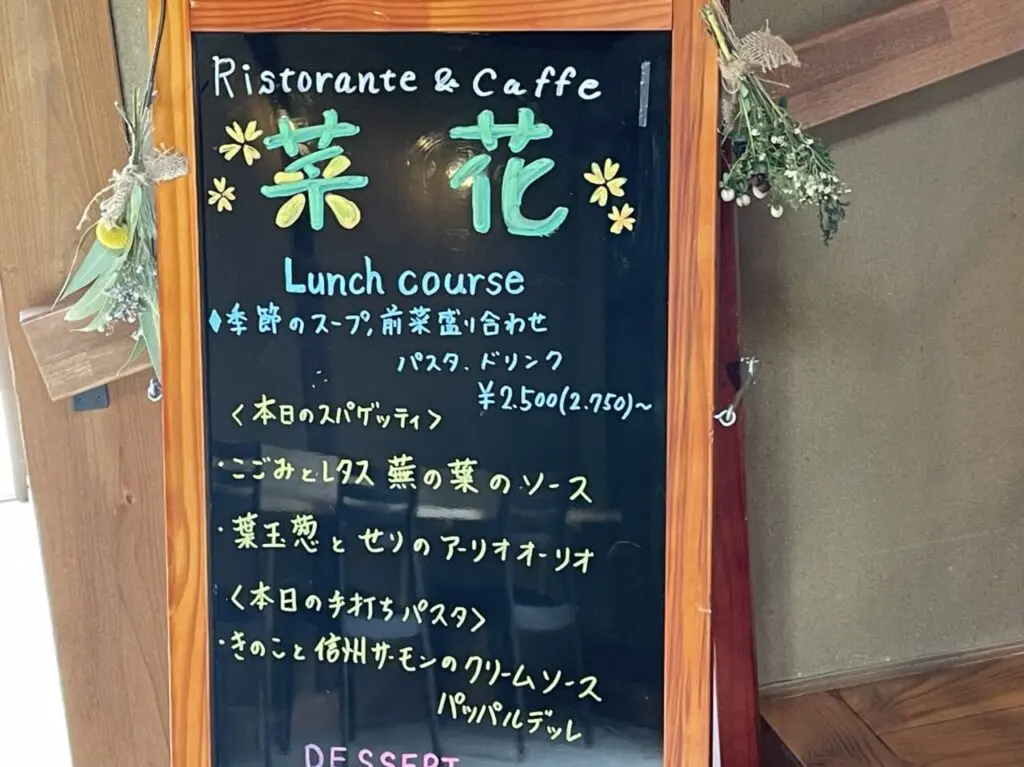 Ristorante & Caffe
菜花
Lunch course
♦季節のスープ,前菜盛り合わせ
パスタ.ドリンク
¥2.500(2.750)~
〈本日のスパゲッティ〉
・こごみとレタス 蕪の葉のソース
・葉玉葱とせりのアーリオオーリオ
〈本日の手打ちパスタ〉
・きのこと信州サーモンのクリームソース
パッパルデッレ
DESSERT